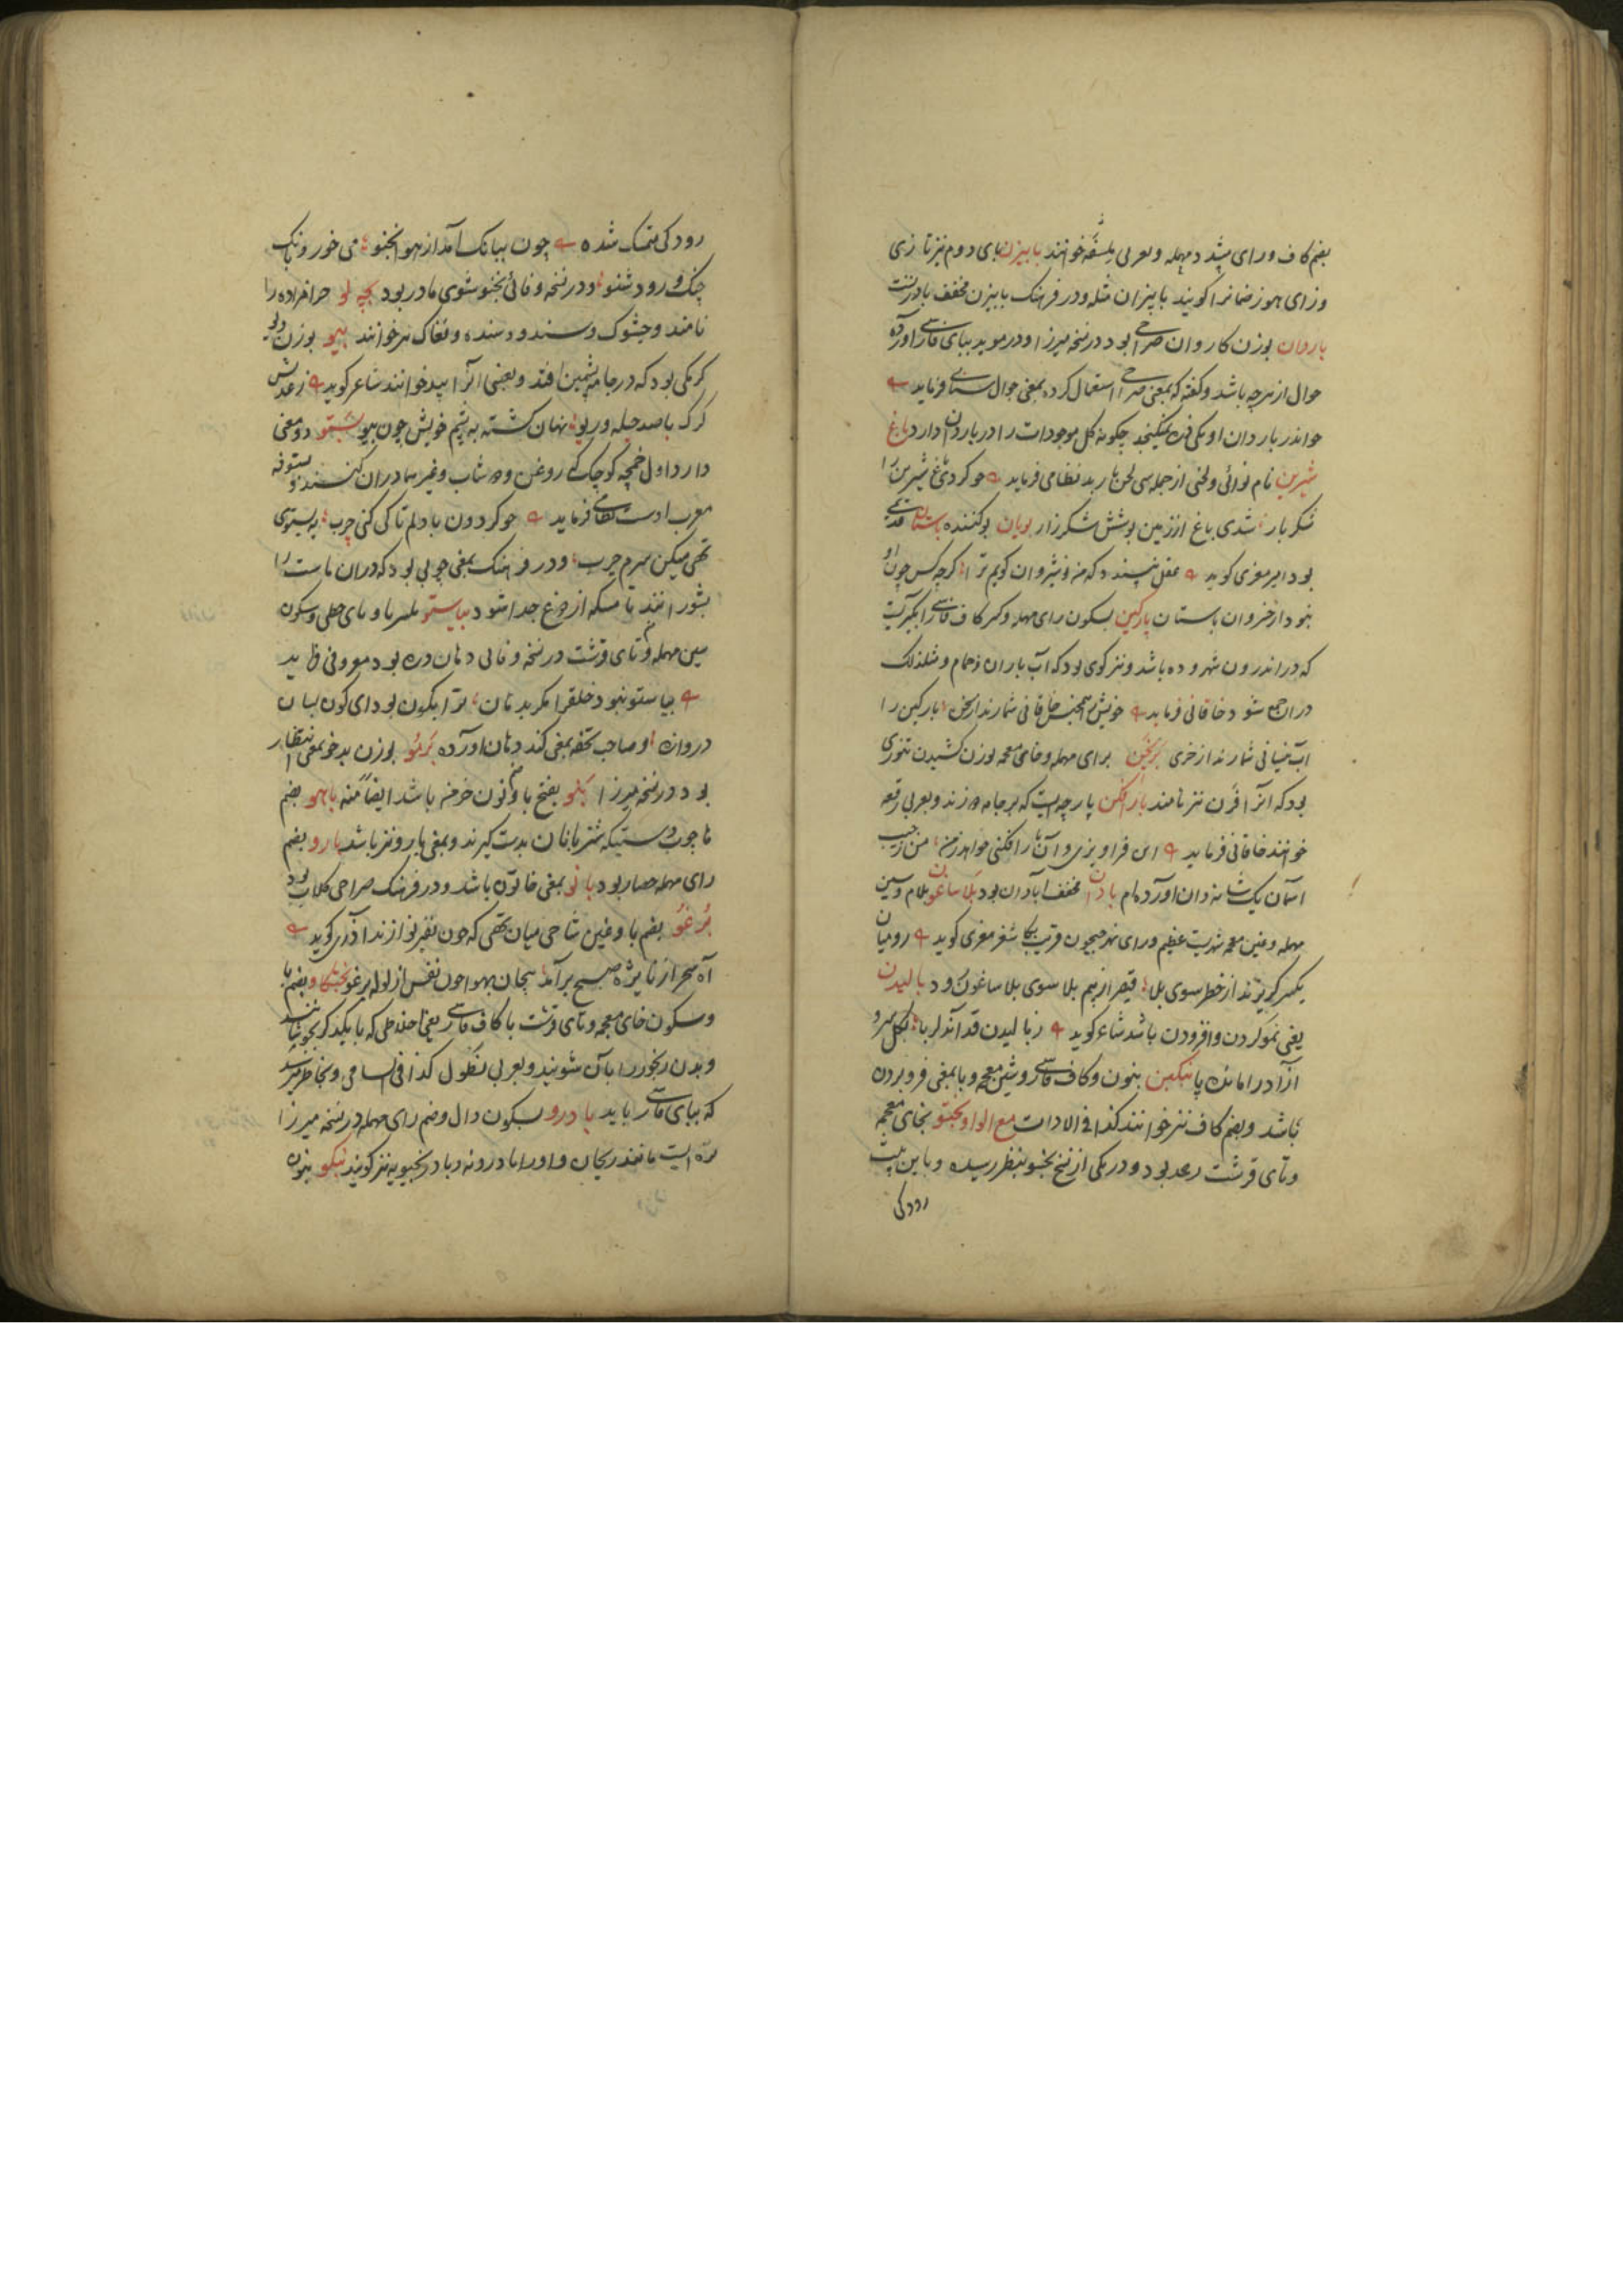 بضم کاف و رای مشدد مهمله و بعربی بلسقه خوانند بابیزن بای دوم نیز تازی
و زای هوز ضمانرا گویند بابیزان مثله و در فرهنگ بابیزن مخفف بادزنست
باروان بوزن کاروان صراحی بود در نسخه میرزا و در موید ببای فارسی آورده
جوال از هرچه باشد و گفته که بمعنی صراحی استعمال کرده بمعنی جوال سنائی فرماید
خواندر باردان او یکی ذره نمیگنجد چگونه کل موجودات را در باردان دارد باغ
شیرین نام نوائی و لحنی از جمله سی لحن باربد نظامی فرماید چو کردی باغ شیرین را
شکر بار شدی باغ از زمین بوشش شکرزار بویان بو کننده باستان قدیم
بود امیر معزی گوید عقل نپسندد که من نوشیروان گویم ترا گرچه کس چون او
نبود از خسروان باستان پارگین بسکون رای مهمله و کسر کاف فارسی آبگیریست
که در اندرون شهر و ده باشد و نیز گوی بود که آب باران و حمام و مثل ذلک
دران جمع شود خاقانی فرماید خویش همجنس خاقانی شمارند از سخن پارگین را
آب نیسانی شمارند از خری برنخن برای مهمله و خای معجمه بوزن کشیدن تنوری
بود که آنرا فرن نیز نامند بارافکن پارچه ایست که بر جامه دوزند و بعربی رقعه
خوانند خاقانی فرماید این فراویزی و آن بارافکنی خواهد ز من من ز جیب
آسمان یک شانه دان آورده ام بادان مخفف آبادان بود بلاساغون بلام و سین
مهمله و غین معجمه شهریست عظیم ورای نهر جیحون قریب بکاشغر معزی گوید رومیان
یکسر گریزند از خطر سوی بلا قیصر از بیم بلا سوی بلاساغون رود بالیدن
یعنی نمو کردن و افزودن باشد شاعر گوید ز بالیدن قد آن دلربا بکل سرو
آزاد را مانده پا بنگشن بنون و کاف فارسی و شین معجمه و با بمعنی فرو بردن
باشد و بضم کاف نیز خوانند کذا فی الادات مع الواو بختو بخای معجمه
و تای قرشت رعد بود و در یکی از نسخ بخنو بنظر رسیده و باین بیت
رودکی
رودکی متمسک شده چون ببانگ آمد از هوا بخنو می خور و بانگ
چنگ و رود شنو و در نسخه وفائی بختو شوی مادر بود بچه لو حرامزاده را
نامند و جشوک و سندو و سنده و فغاک نیز خوانند بیو بوزن دیو
کرمکی بود که در جامه پشمین افتد و بعضی آنرا بید خوانند شاعر گوید ز عدلش
گرگ با صد حیله و ریو نهان گشته به پشم خویش چون بیو بستو دو معنی
دارد اول خمچه کوچک که روغن و دوشاب و غیر هما دران کنند و بستوقه
معرب اوست نظامی فرماید چو گردون با دلم تا کی کنی چرب به بستوی
تهی میکن سرم چرب و در فرهنگ بمعنی چوبی بود که دران ماست را
بشورانند تا مسکه از دوغ جدا شود بیاستو بکسر با و یای حطی و سکون
سین مهمله و تای قرشت در نسخه وفائی دهان دره بود معروفی فرماید
بیاستو نبود خلق را مگر بدهان ترا بکون بود ای کون بسان
دروازه و صاحب تحفه بمعنی گند دهان آورده برمو بوزن بدخو بمعنی انتظار
بود در نسخه میرزا بنو بفتح با و نون خرمنه باشد ایضا منه باهو بضم
ها چوب دستیکه شتربانان بدست گیرند و بمعنی بازو نیز باشد بارو بضم
رای مهمله حصار بود بانو بمعنی خاتون باشد و در فرهنگ صراحی گلاب بود
برغو بضم با و غین شاخی میان تهی که چون نفیر نوازند آذری گوید
آه سحر از نایژه صبح برآمد پیجان بهوا چون نفس از لوله برغو بختکاو بضم با
و سکون خای معجمه و تای قرشت با کاف فارسی یعنی اخلاطی که با یکدیگر بجوشانند
و بدن رنجور را بآن شویند و بعربی نطول کذا فی السامی و بخاطر میرسد
که ببای فارسی باید بادرو بسکون دال و ضم رای مهمله در نسخه میرزا
تره ایست مانند ریحان و او را بادرونه و بادرنجبویه نیز گویند بنکو بنون